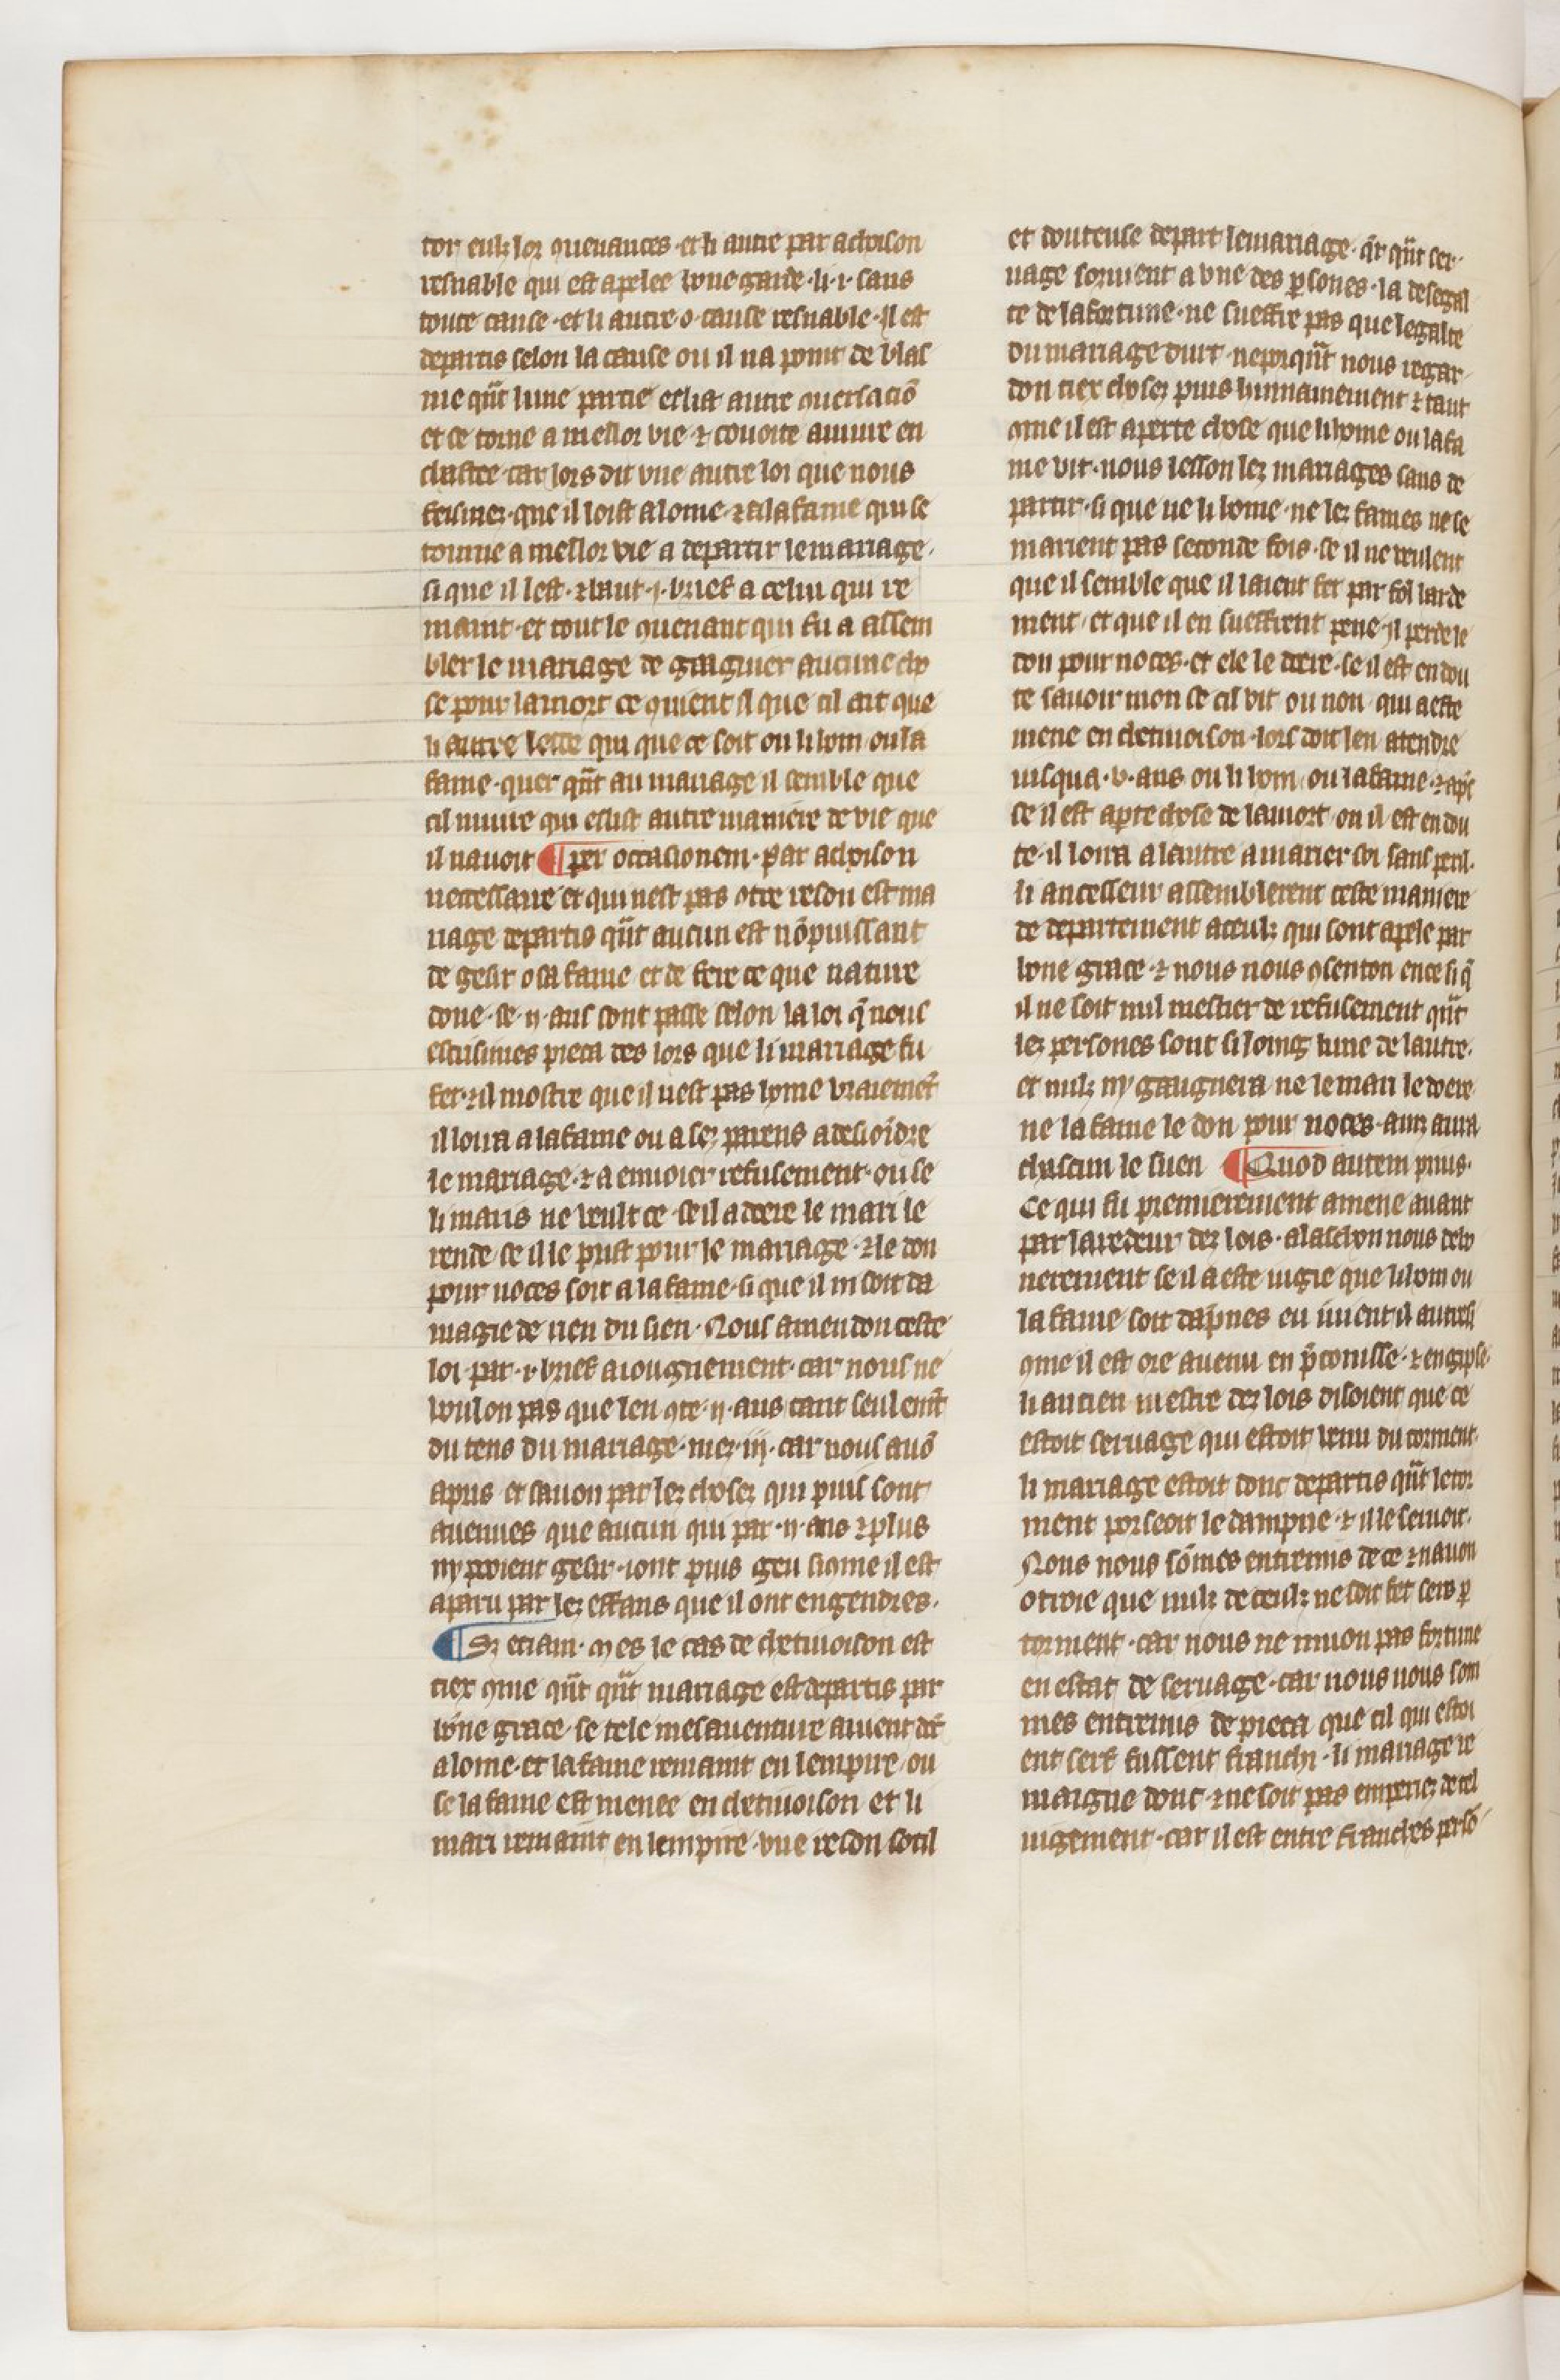 tor eulz lor ꝯuenances · et li autre par achoison
resnable qui est apelee bone garde · li · i · sans
toute cause · et li autre o cause resnable · Il est
departis selon la cause ou il na point de blas
me qñt lune partie eslist autre ꝯuersaciō
et se torne a mellor vie ⁊ couoite a viure en
chastee · car lors dit vne autre loi que nous
feismez · que il loist a lome · ⁊ a la fame qui se
tourne a mellor vie a departir le mariage ·
si que il lest · ⁊ baut · i · brief a celui qui re
maint · et tout le ꝯuenant qui fu a assem
bler le mariage de gaagnier aucune cho
se pour la mort ce ꝯuient il que cil ait que
li autre lesse qui que ce soit ou li hom ou la
fame · quer qñt au mariage il semble que
cil muire qui eslist autre maniere de vie que
il nauoit ¶ per occasionem · par achoison
necessaire et qui nest pas otre reson est ma
riage departis qñt aucun est nō puissant
de gesir o sa fame et de fere ce que nature
done · se · ij · ans sont passe selon la loi q̄ nous
escrisimes pieca des lors que li mariage fu
fet · ⁊ il mostre que il nest pas home vraiemēt
il loira a la fame ou a sez parens a desioīdre
le mariage · ⁊ a enuoier refusement · ou se
li maris ne veult ce · se il a doere le mari le
rende se il le prist pour le mariage · ⁊ le don
pour noces soit a la fame · si que il ni soit da
magie de rien du sien · Nous amendon ceste
loi · par · i · brief aiougnement · car nous ne
voulon pas que len ꝯte · ij · ans tant seulemēt
du tens du mariage · mez · iij · car nous auō
apris et sauon par lez chosez qui puis sont
auenues que aucun qui par · ij · ans ⁊ plus
ny pooient gesir · iont puis geu si ꝯme il est
aparu par lez effans que il ont engendres ·
¶ Sz etiam · Mes le cas de chetiuoison est
tiex ꝯme qñt qñt mariage est departis par
bōne grace · se tele mesauenture auient dē
a lome · et la fame remaint en lempire / ou
se la fame est menee en chetiuoison et li
mari remaint en lempire · vne reson sotil
et douteuse depart le mariage · qr qñt ser-
uage soruient a vne des ꝑsones · la desegal
te de la fortune · ne sueffre pas que legalte
du mariage durt · neporqñt nous regar-
don tiex chosez puis humainement ⁊ tant
ꝯme il est aperte chose que li home ou la fa
me vit · nous lesson lez mariages sans de
partir · si que ne li home · ne lez fames ne se
marient pas seconde fois · se il ne veulent
que il semble que il laient fet par fol harde
ment / et que il en sueffrent pene · Il perde le
don pour noces · et ele le doere · se il est en dou
te sauoir mon se cil vit ou non / qui a este
mene en chetiuoison · lors doit len atendre
iusqua · v · ans ou li hom / ou la fame · ⁊ apꝭ
se il est aperte chose de la mort · ou il est en dou
te · il loira a lautre a marier soi sans peril ·
li ancesseur assemblerent ceste maniere
de departement a ceulz qui sont apele par
bone grace · ⁊ nous nous ꝯsenton en ce si q̄
il ne soit nul mestier de refusement qñt
lez persones sont si loing lune de lautre ·
et nulz ny gaugnera · ne le mari le doere
ne la fame le don pour noces · ainz aura
chascun le suen ¶ Quod autem prius ·
Ce qui fu premierement amene auant
par la redeur dez lois · a laschon nous debo
nerement se il a este iugie que li hom ou
la fame soit dāpnes eu īuient il autresi
ꝯme il est ore auenu en p̄conisse · ⁊ en gipse ·
li ancien mestre dez lois disoient que ce
estoit seruage qui estoit venu du torment ·
li mariage estoit donc departis qñt le tor
ment porseoit le dampne · ⁊ il le seruoit ·
Nous nous sōmes entremis de ce ⁊ nauon
otroie que nulz de ceulz ne soit fet sers ꝑ
torment · car nous ne muon pas fortune
en estat de seruage · car nous nous som
mes entremis de pieca que cil qui estoi
ent serf fussent franchi · li mariage re
maigne donc · ⁊ ne soit pas emperiez de tel
iugement · car il est entre franches persō